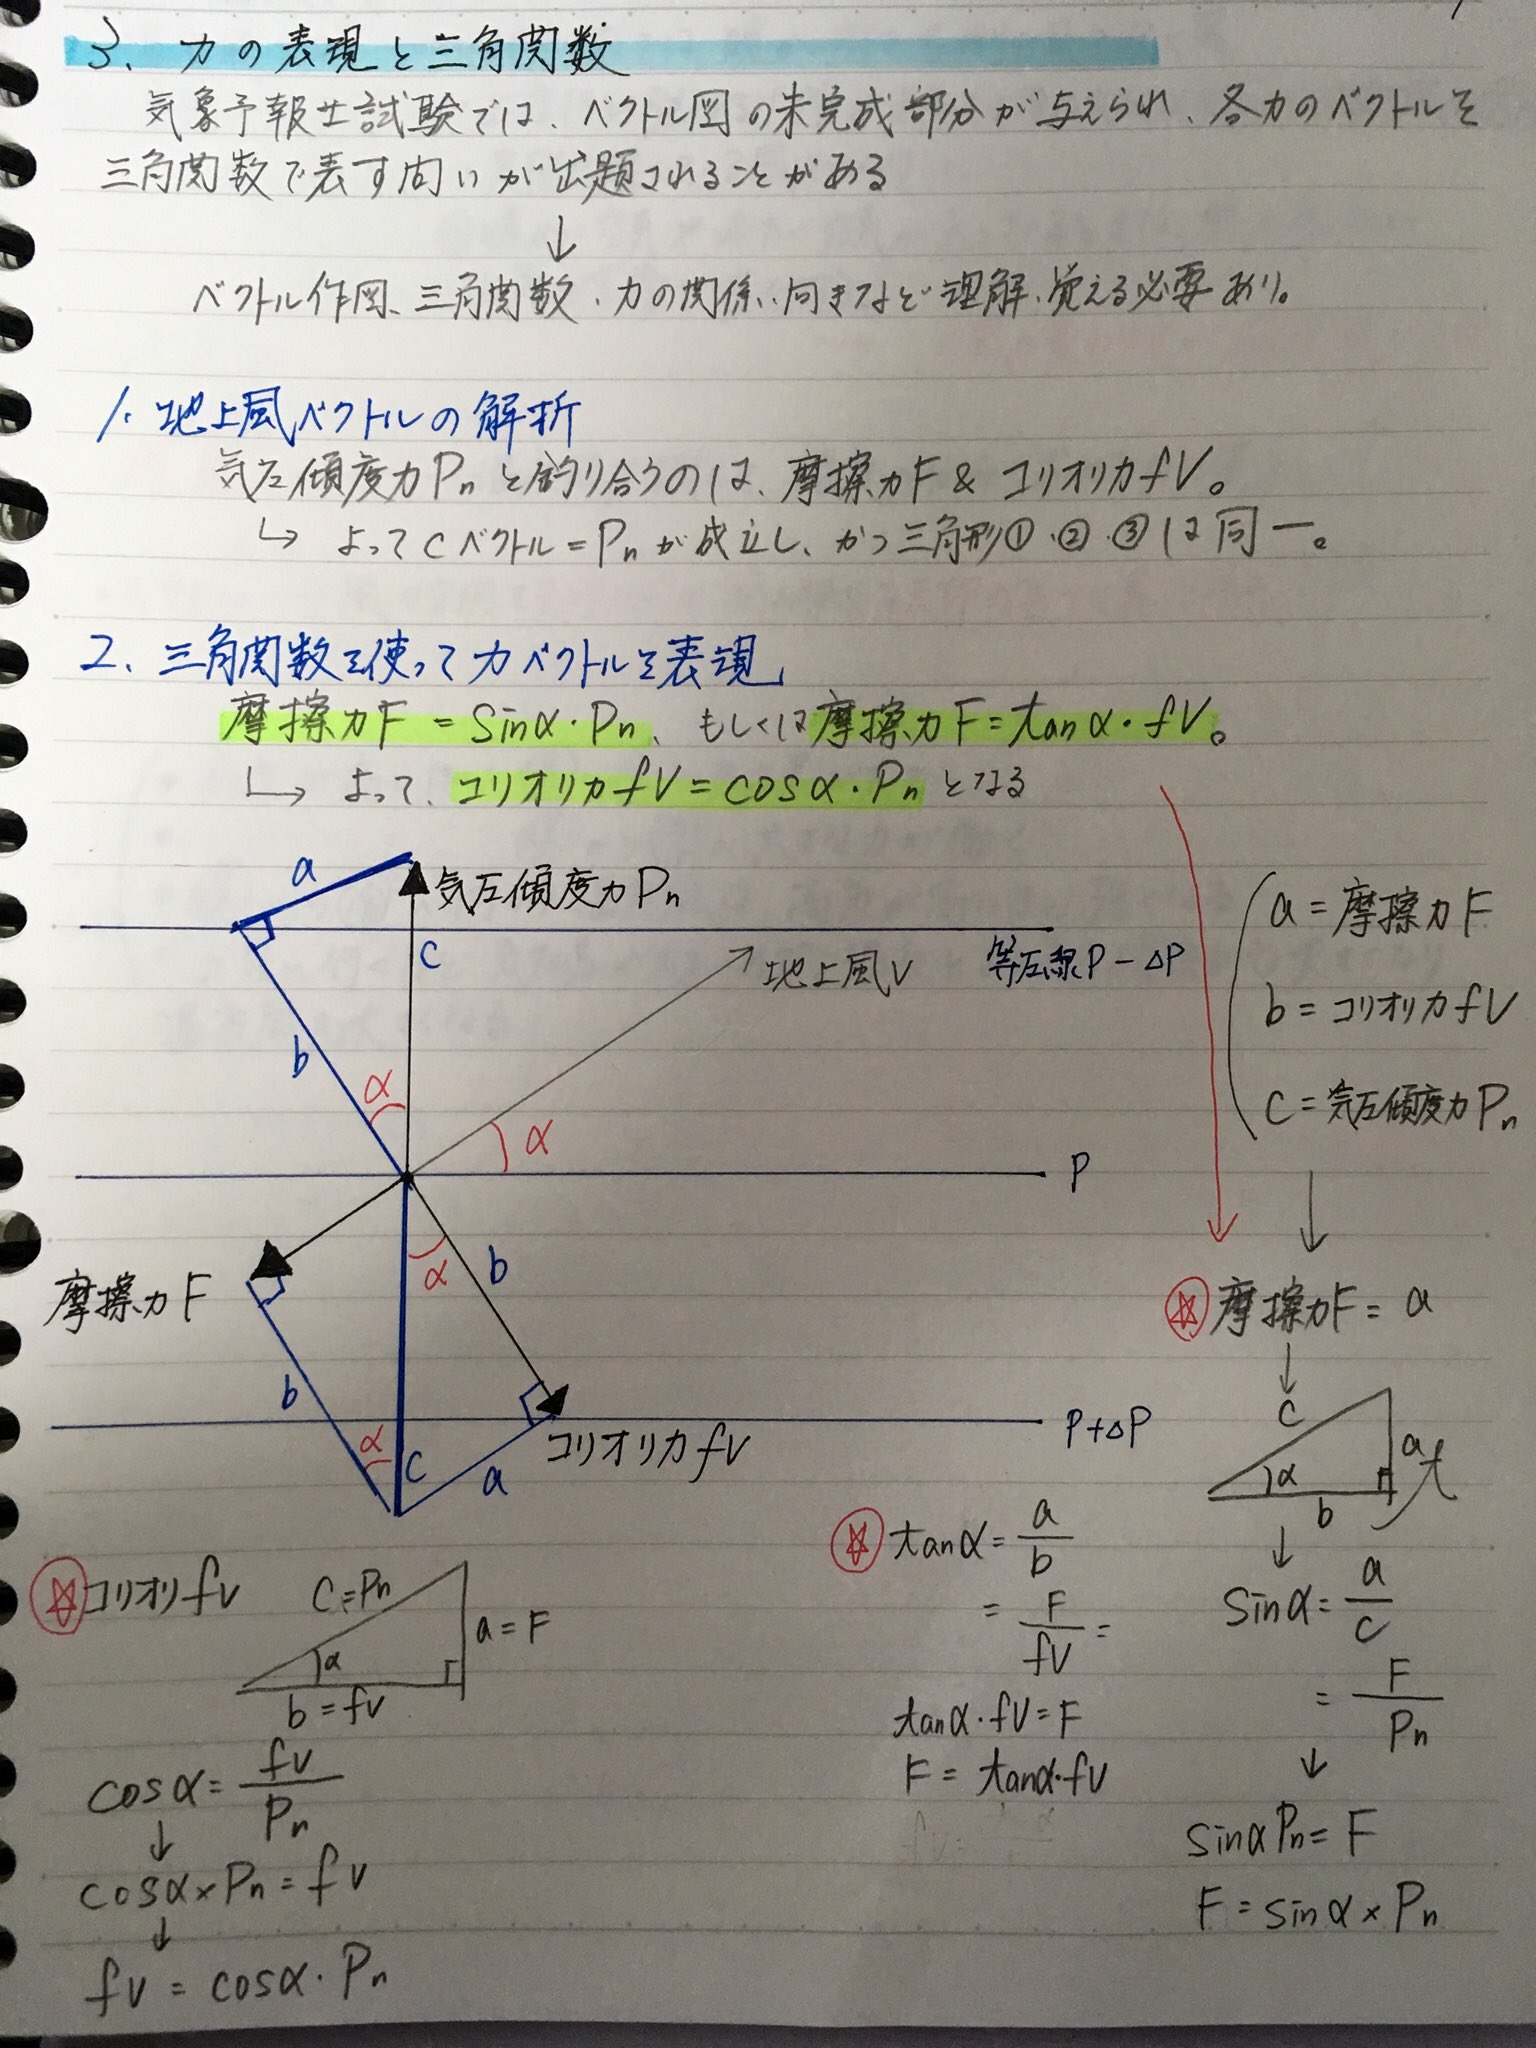 3、力の表現と三角関数
気象予報士試験では、ベクトル図の未完成部分が与えられ、各力のベクトルを
三角関数で表す問いが出題されることがある
↓
ベクトル作図、三角関数、力の関係、向きなど理解、覚える必要あり。
1. 地上風ベクトルの解析
気圧傾度力Pnと釣り合うのは、摩擦力F & コリオリ力fV。
↳ よってcベクトル=Pnが成立し、かつ三角形①・②・③は同一。
2、三角関数を使って力ベクトルを表現
摩擦力F = sinα・Pn、もしくは摩擦力F=tanα・fV。
↳ よって、コリオリ力fV=cosα・Pnとなる
a
気圧傾度力Pn
c
地上風V
等圧線P-ΔP
b
α
α
P
α
b
摩擦力F
b
α
c
a
コリオリ力fV
P+ΔP
a=摩擦力F
b=コリオリ力fV
c=気圧傾度力Pn
↓
☆摩擦力F= a
↓
c
α
a
b
↓
sinα= a/c
= F/Pn
↓
sinαPn= F
F=sinα×Pn
☆tanα= a/b
= F/fV =
tanα・fV=F
F= tanα・fV
☆コリオリfV
c=Pn
a=F
α
b=fV
cosα= fV/Pn
↓
cosα×Pn=fV
↓
fV = cosα・Pn